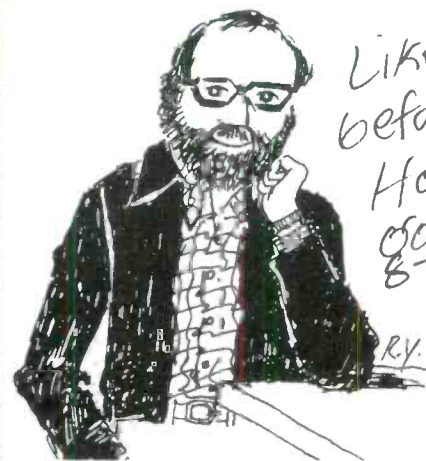 Lik
befo
Ho
go
R.Y.